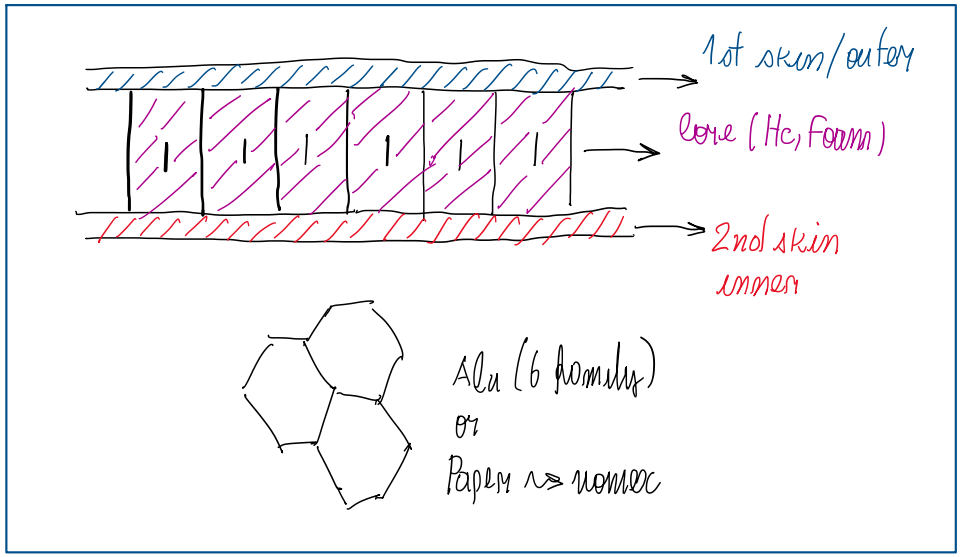 1st skin/outer
Core (Hc, Foam)
2nd skin
inner
Alu (6 family)
or
Paper ~> nomex